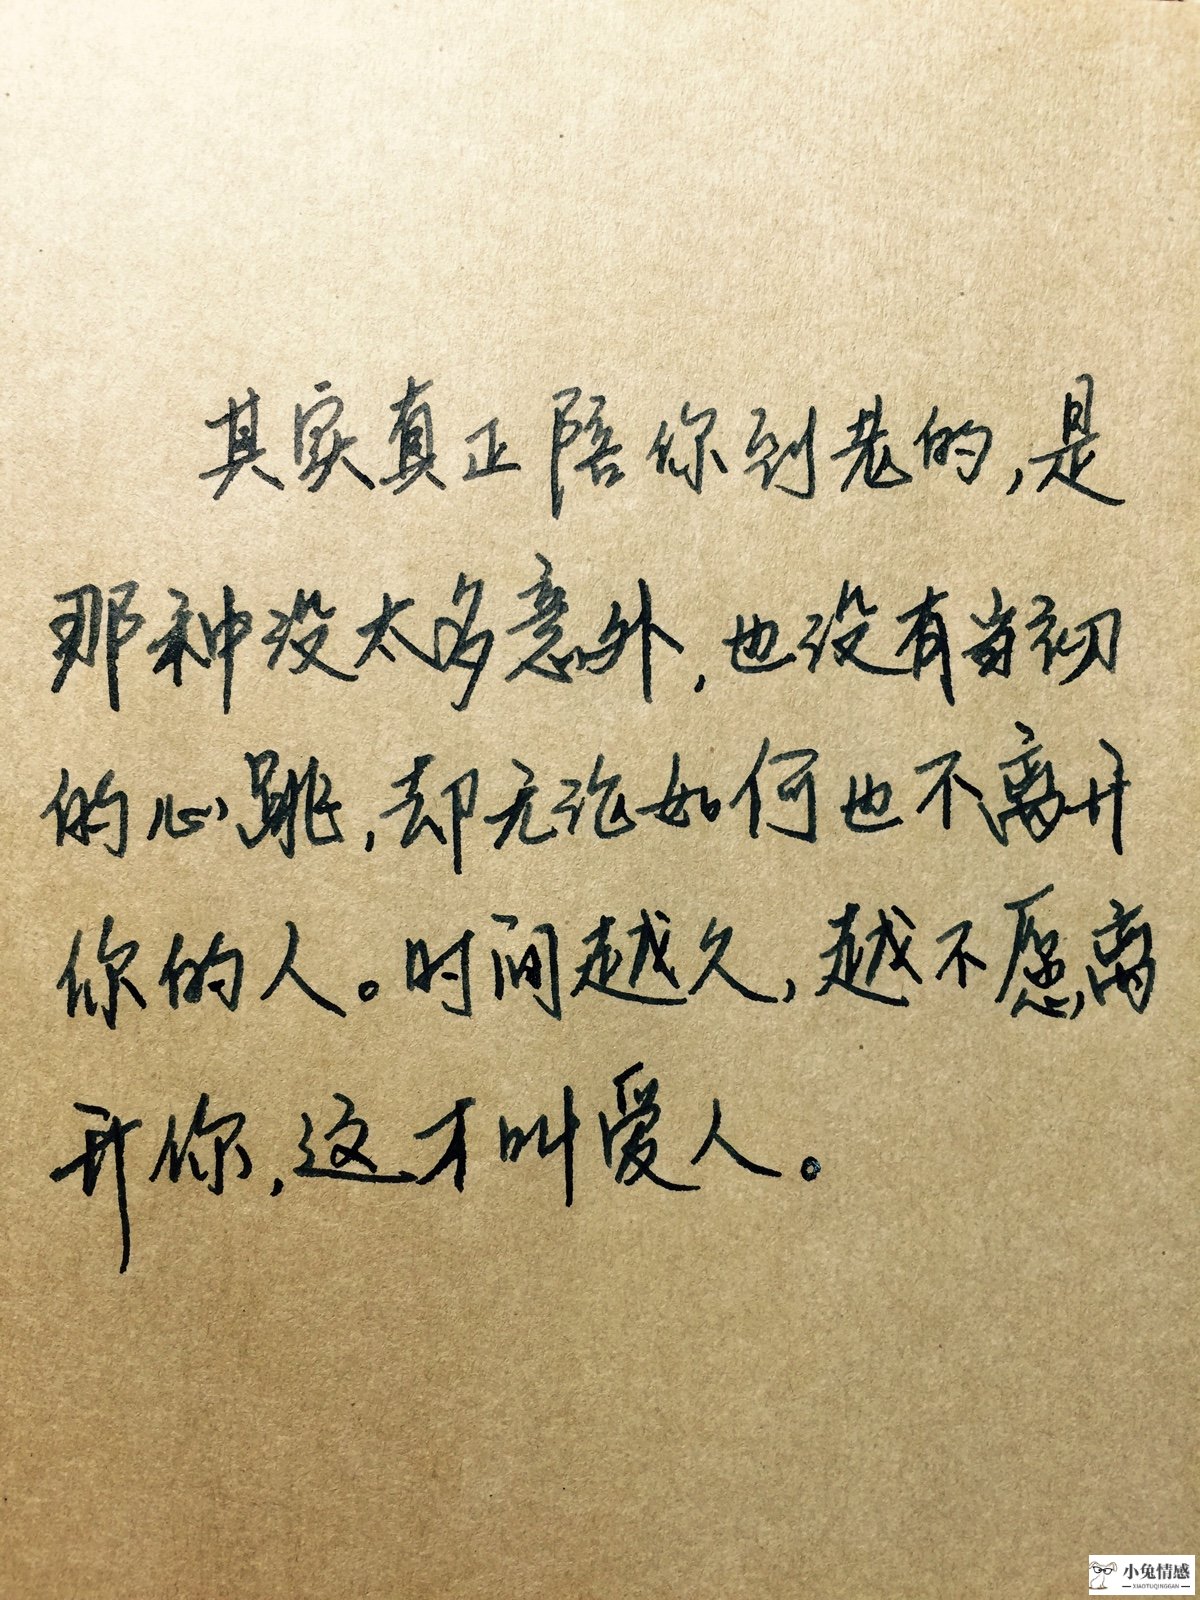 其实真正陪你到老的,是
那种没太多意外,也没有当初
的心跳,却无论如何也不离开
你的人。时间越久,越不愿离
开你,这才叫爱人。
小兔情感
XIAOTUQINGGAN